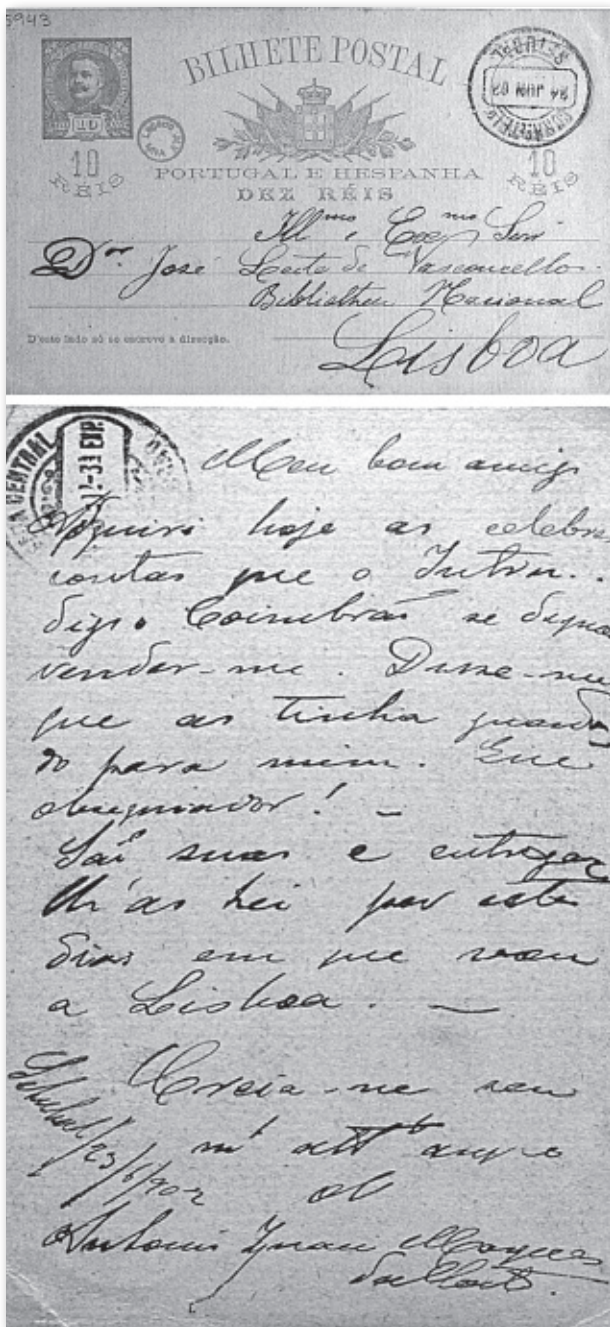 5943
BILHETE POSTAL
10
RÉIS
10
RÉIS
SETUBAL
24 JUN 02
PORTUGAL E HESPANHA
DEZ RÉIS
Ill.mo e Exmo Snr
Dor José Leite de Vasconcellos
Bibliotheca Nacional
D'este lado só se escreve a direcção.
Lisboa
CENTRAL
Meu bom amigo
Adquiri hoje as celebres
contas que o Intru..
digo Coimbra se dignou
vender-me. Disse-me
que as tinha guarda
do para mim. Que
obsequiador! -
São suas e entregar
lh'as hei por estes
dias em que vou
a Lisboa. -
Creia-me seu
mto attto amgo
Setubal/23/6/902
Antonio Ignacio Marques
da Costa.